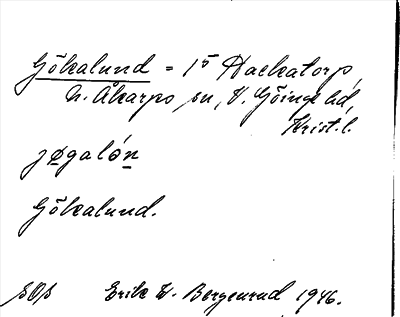 Gökalund = 1⁵ Hackatorp,
N. Åkarps sn, V. Göinge hd,
Krist. l.
jøgalón
Gökalund.
Erik W. Bergenrud 1946.